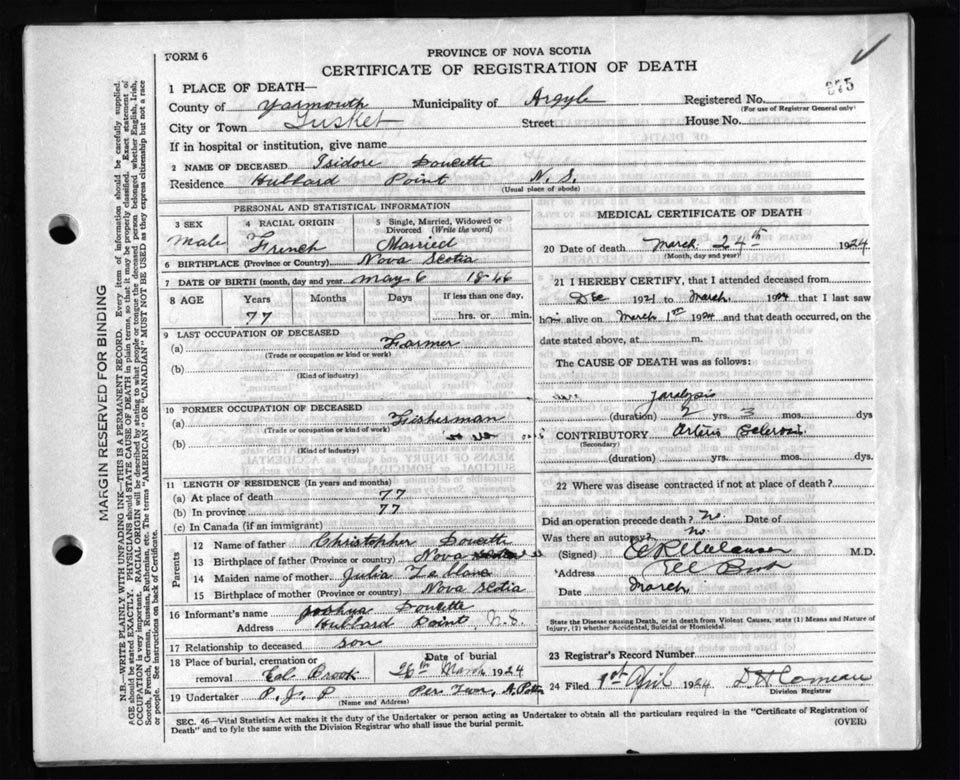 FORM 6
PROVINCE OF NOVA SCOTIA
CERTIFICATE OF REGISTRATION OF DEATH
375
1 PLACE OF DEATH—
County of Yarmouth Municipality of Argyle Registered No.
(For use of Registrar General only)
City or Town Tusket Street House No.
If in hospital or institution, give name
2 NAME OF DECEASED Isidore Doucette
Residence Hubbard Point N. S.
(Usual place of abode)
PERSONAL AND STATISTICAL INFORMATION
3 SEX 4 RACIAL ORIGIN 5 Single, Married, Widowed or Divorced (Write the word)
Male French Married
6 BIRTHPLACE (Province or Country) Nova Scotia
7 DATE OF BIRTH (month, day and year) May 6 1846
8 AGE Years Months Days If less than one day,
77 hrs. or min.
9 LAST OCCUPATION OF DECEASED
(a) Farmer
(Trade or occupation or kind or work)
(b)
(Kind of industry)
10 FORMER OCCUPATION OF DECEASED
(a) Fisherman
(Trade or occupation or kind of work)
(b)
(Kind of industry)
11 LENGTH OF RESIDENCE (In years and months)
(a) At place of death 77
(b) In province 77
(c) In Canada (if an immigrant)
Parents
12 Name of father Christopher Doucette
13 Birthplace of father (Province or country) Nova
14 Maiden name of mother Julia Leblanc
15 Birthplace of mother (Province or country) Nova Scotia
16 Informant's name Joshua Doucette
Address Hubbard Point N.S.
17 Relationship to deceased son
18 Place of burial, cremation or removal Date of burial
26th March 1924
19 Undertaker P. J. P
(Name and Address)
MEDICAL CERTIFICATE OF DEATH
20 Date of death March 24th 1924
(Month, day and year)
21 I HEREBY CERTIFY, that I attended deceased from
Dec 1921 to March, 1924 that I last saw
him alive on March 1st 1924 and that death occurred, on the
date stated above, at m.
The CAUSE OF DEATH was as follows:
Paralysis
(duration) 2 yrs. 3 mos. dys
CONTRIBUTORY Arterio Sclerosis
(Secondary)
(duration) yrs. mos. dys.
22 Where was disease contracted if not at place of death?
Did an operation precede death? No Date of
Was there an autopsy? No.
(Signed) M.D.
Address Eel Brook
Date March
State the Disease causing Death, or in death from Violent Causes, state (1) Means and Nature of
Injury, (2) whether Accidental, Suicidal or Homicidal.
23 Registrar's Record Number
24 Filed 1st April 1924 D. H. Comeau
Division Registrar
SEC. 46—Vital Statistics Act makes it the duty of the Undertaker or person acting as Undertaker to obtain all the particulars required in the "Certificate of Registration of
Death" and to fyle the same with the Division Registrar who shall issue the burial permit. (OVER)
MARGIN RESERVED FOR BINDING
N.B.—WRITE PLAINLY WITH UNFADING INK—THIS IS A PERMANENT RECORD. Every item of information should be carefully supplied.
AGE should be stated EXACTLY. PHYSICIANS should STATE CAUSE OF DEATH in plain terms, so that it may be properly classified. Exact statement of
OCCUPATION is very important. RACIAL ORIGIN will be described by stating to what people or tongue the deceased person belonged whether English, Irish,
Scotch, French, German, Russian, Ruthenian, etc. The terms "AMERICAN" OR "CANADIAN" MUST NOT BE USED as they express citizenship but not a race
or people. See instructions on back of Certificate.